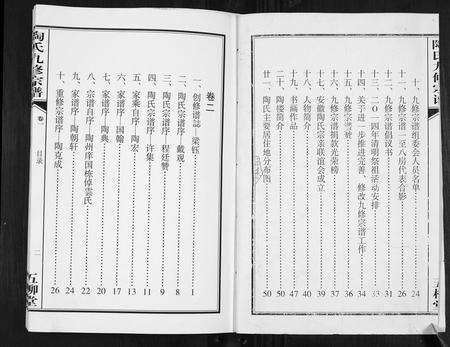 陶氏九修宗谱
十、九修宗谱组委会人员名单 24
十一、九修宗谱一至八房代表合影 26
十二、九修宗谱倡议书 31
十三、二0一四年清明祭祖活动安排 33
十四、关于进一步推进完善、修改九修宗谱工作 34
十五、九修宗谱 36
十六、九修宗谱捐款光荣榜 37
十七、安徽陶氏宗亲联谊会成立 39
十八、人物简介 40
十九、书画作品 47
二十、陶楼简介 50
廿一、陶氏主要居住地分布图 50
卷二
一、创修谱志—梁钰 1
二、陶氏宗谱序—戴观 8
三、陶氏宗谱序—程廷赞 9
四、陶氏宗谱序—许集 11
五、家乘自序—陶宏 13
六、家谱序—国翰 17
七、家谱序—陶典 20
八、宗谱自序—陶州庠国栋倬雲氏 22
九、家谱序—陶朝轩 24
十、重修宗谱序—陶克成 26
陶氏九修宗谱
卷一
目录
二
五柳堂